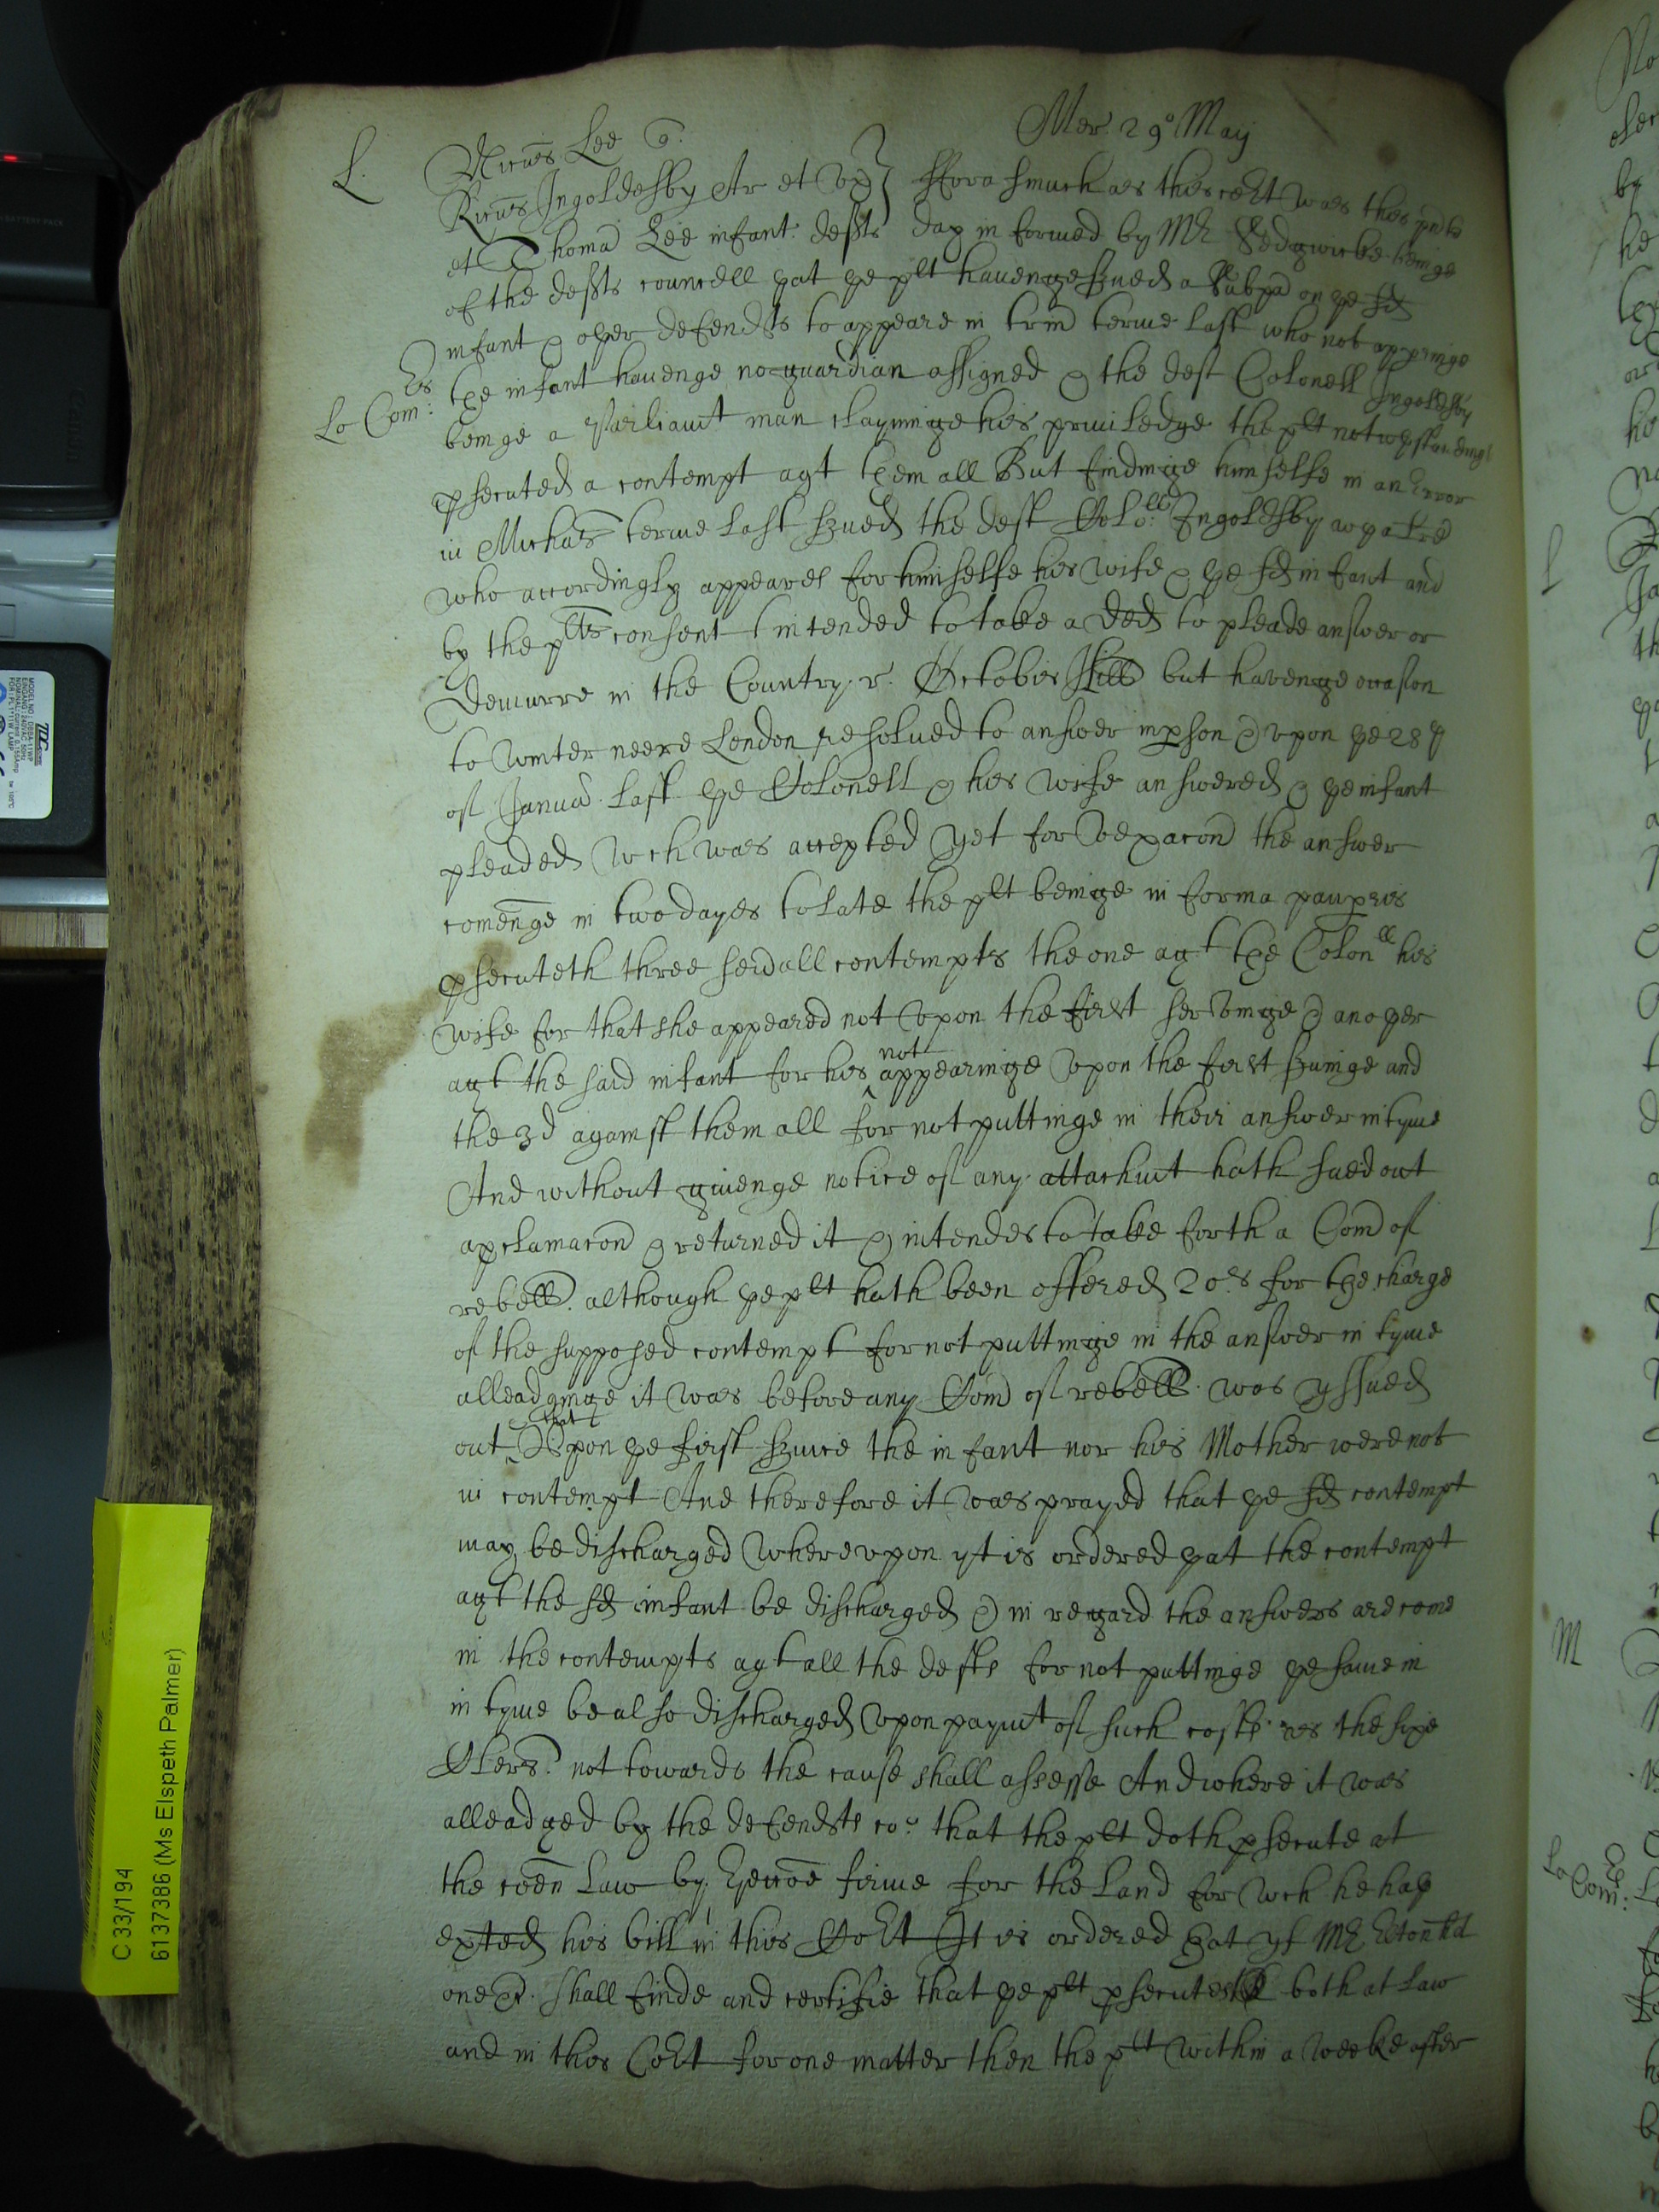 Mer. 29o May
L. Nicūs Lee q.
Ricūs Ingoldesby Ar et Ux } fforasmuch as this cort was this pnte
et Thoma Lee infant defts day informed by Mr Sedgwicke beinge
of the defts councell yat ye plt havenge served a Subpa on ye sd
infant & oyer defendts to appeare in trin terme last who not appringe
the infant havenge no guardian assigned & the deft Colonell Ingoldsby
Lo Com: beinge a Parliamt man clayminge his priviledge the plt notwthstanding
psecuted a contempt agt them all But findinge himselfe in an Error
in Michas terme last served the deft Cololl Ingoldsby wth a tre
who accordingly appeares for himselfe his wife & ye sd infant and
by the plts consent intended to take a ded to pleade answer or
demurre in the Country r. Octobis Hill but havenge occasion
to winter neere London resolved to answer in pson & upon ye 28
of Janua last ye Colonell & his wife answered & ye infant
pleaded wch was accepted yet for vexacon the answer
comenge in two dayes to late the plt beinge in forma paupris
psecuteth three sevall contempts the one agt the Colonll his
wife for that she appeared not upon the first servinge & anoyer
agt the said infant for his not appearinge upon the first servinge and
the 3d against them all for not puttinge in their answer in tyme
And without givenge notice of any attachmt hath sued out
a pclamacon & returned it & intendes to take forth a Com of
rebell. although ye plt hath been offered 20s for the charge
of the supposed contempt for not puttinge in the answer in tyme
alleadginge it was before any Com of rebell. was yssued
out & that upon ye first service the infant nor his Mother were not
in contempt And therefore it was prayed that ye sd contempt
may be discharged Whereupon yt is ordered yat the contempt
agt the sd infant be discharged & in regard the answers are come
in the contempts agt all the defts for not puttinge ye same in
in tyme be also discharged upon paymt of such costs as the sixe
Clers. not towards the cause shall assesse And where it was
alleadged by the defendts co: that the plt doth psecute at
the coen Law by Ejeccoe firme for the Land for wch he hath
exted his bill in this Cort It is ordered yat yf Mr Eltonhd
one &. shall finde and certifie that ye plt psecuteth both at Law
and in this Cort for one matter then the plt within a weeke after
C 33/194
6137386 (Ms Elspeth Palmer)